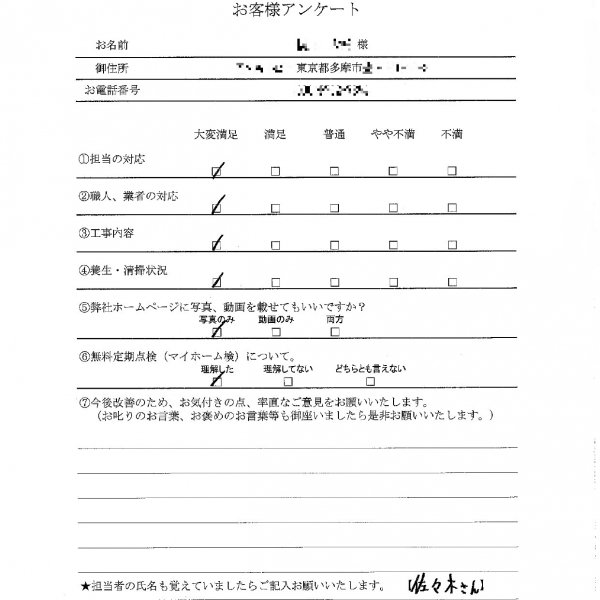 お客様アンケート
お名前 様
御住所 東京都多摩市
お電話番号
大変満足 満足 普通 やや不満 不満
①担当の対応
②職人、業者の対応
③工事内容
④養生・清掃状況
⑤弊社ホームページに写真、動画を載せてもいいですか？
写真のみ 動画のみ 両方
⑥無料定期点検（マイホーム検）について。
理解した 理解してない どちらとも言えない
⑦今後改善のため、お気付きの点、率直なご意見をお願いいたします。
（お叱りのお言葉、お褒めのお言葉等も御座いましたら是非お願いいたします。）
★担当者の氏名も覚えていましたらご記入お願いいたします。 【佐々木さん】